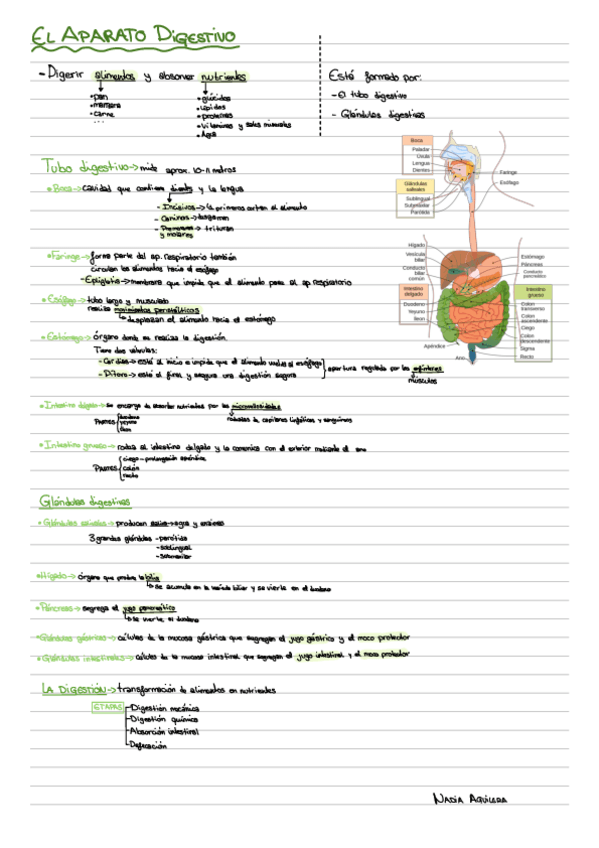 EL APARATO DIGESTIVO
- Digerir alimentos y absorver nutrientes
• pan
• manzana
• carne
...
• glúcidos
• lípidos
• proteínas
• Vitaminas y sales minerales
• Agua
Está formado por:
- El tubo digestivo
- Glándulas digestivas
Tubo digestivo → mide aprox. 10-11 metros
• Boca → cavidad que contiene dientes y la lengua
- Incisivos → los primeros cortan el alimento
- Caninos → desgarran
- Premolares → trituran
y molares
• Faringe → forma parte del ap. respiratorio también
circulan los alimentos hacia el esófago
- Epiglotis → membrana que impide que el alimento pase al ap. respiratorio
• Esófago → tubo largo y musculado
realiza movimientos peristálticos
desplazan el alimento hacia el estómago
• Estómago → órgano donde se realiza la digestión
Tiene dos válvulas:
- Cardias → está al inicio e impide que el alimento vuelva al esófago
- Píloro → está al final y asegura una digestión segura
apertura regulada por los esfínteres
músculos
• Intestino delgado → se encarga de absorber nutrientes por las microvellosidades
rodeadas de capilares linfáticos y sanguíneos
PARTES
duodeno
yeyuno
íleon
• Intestino grueso → rodea al intestino delgado y lo comunica con el exterior mediante el ano
PARTES
ciego - prolongación apéndice
colon
recto
Boca
Paladar
Úvula
Lengua
Dientes
Glándulas salivales
Sublingual
Submaxilar
Parótida
Faringe
Esófago
Hígado
Vesícula biliar
Conducto biliar común
Intestino delgado
Duodeno
Yeyuno
Íleon
Apéndice
Ano
Estómago
Páncreas
Conducto pancreático
Intestino grueso
Colon transverso
Colon ascendente
Ciego
Colon descendente
Sigma
Recto
Glándulas digestivas
• Glándulas salivales → producen saliva → agua y enzimas
3 grandes glándulas - parótida
- sublingual
- submaxilar
• Hígado → órgano que produce la bilis
se acumula en la vesícula biliar y se vierte en el duodeno
• Páncreas → segrega el jugo pancreático
se vierte al duodeno
• Glándulas gástricas → células de la mucosa gástrica que segregan el jugo gástrico y el moco protector
• Glándulas intestinales → células de la mucosa intestinal que segregan el jugo intestinal y el moco protector
LA DIGESTIÓN → transformación de alimentos en nutrientes
ETAPAS
Digestión mecánica
Digestión química
Absorción intestinal
Defecación
NADIA AGUILERA